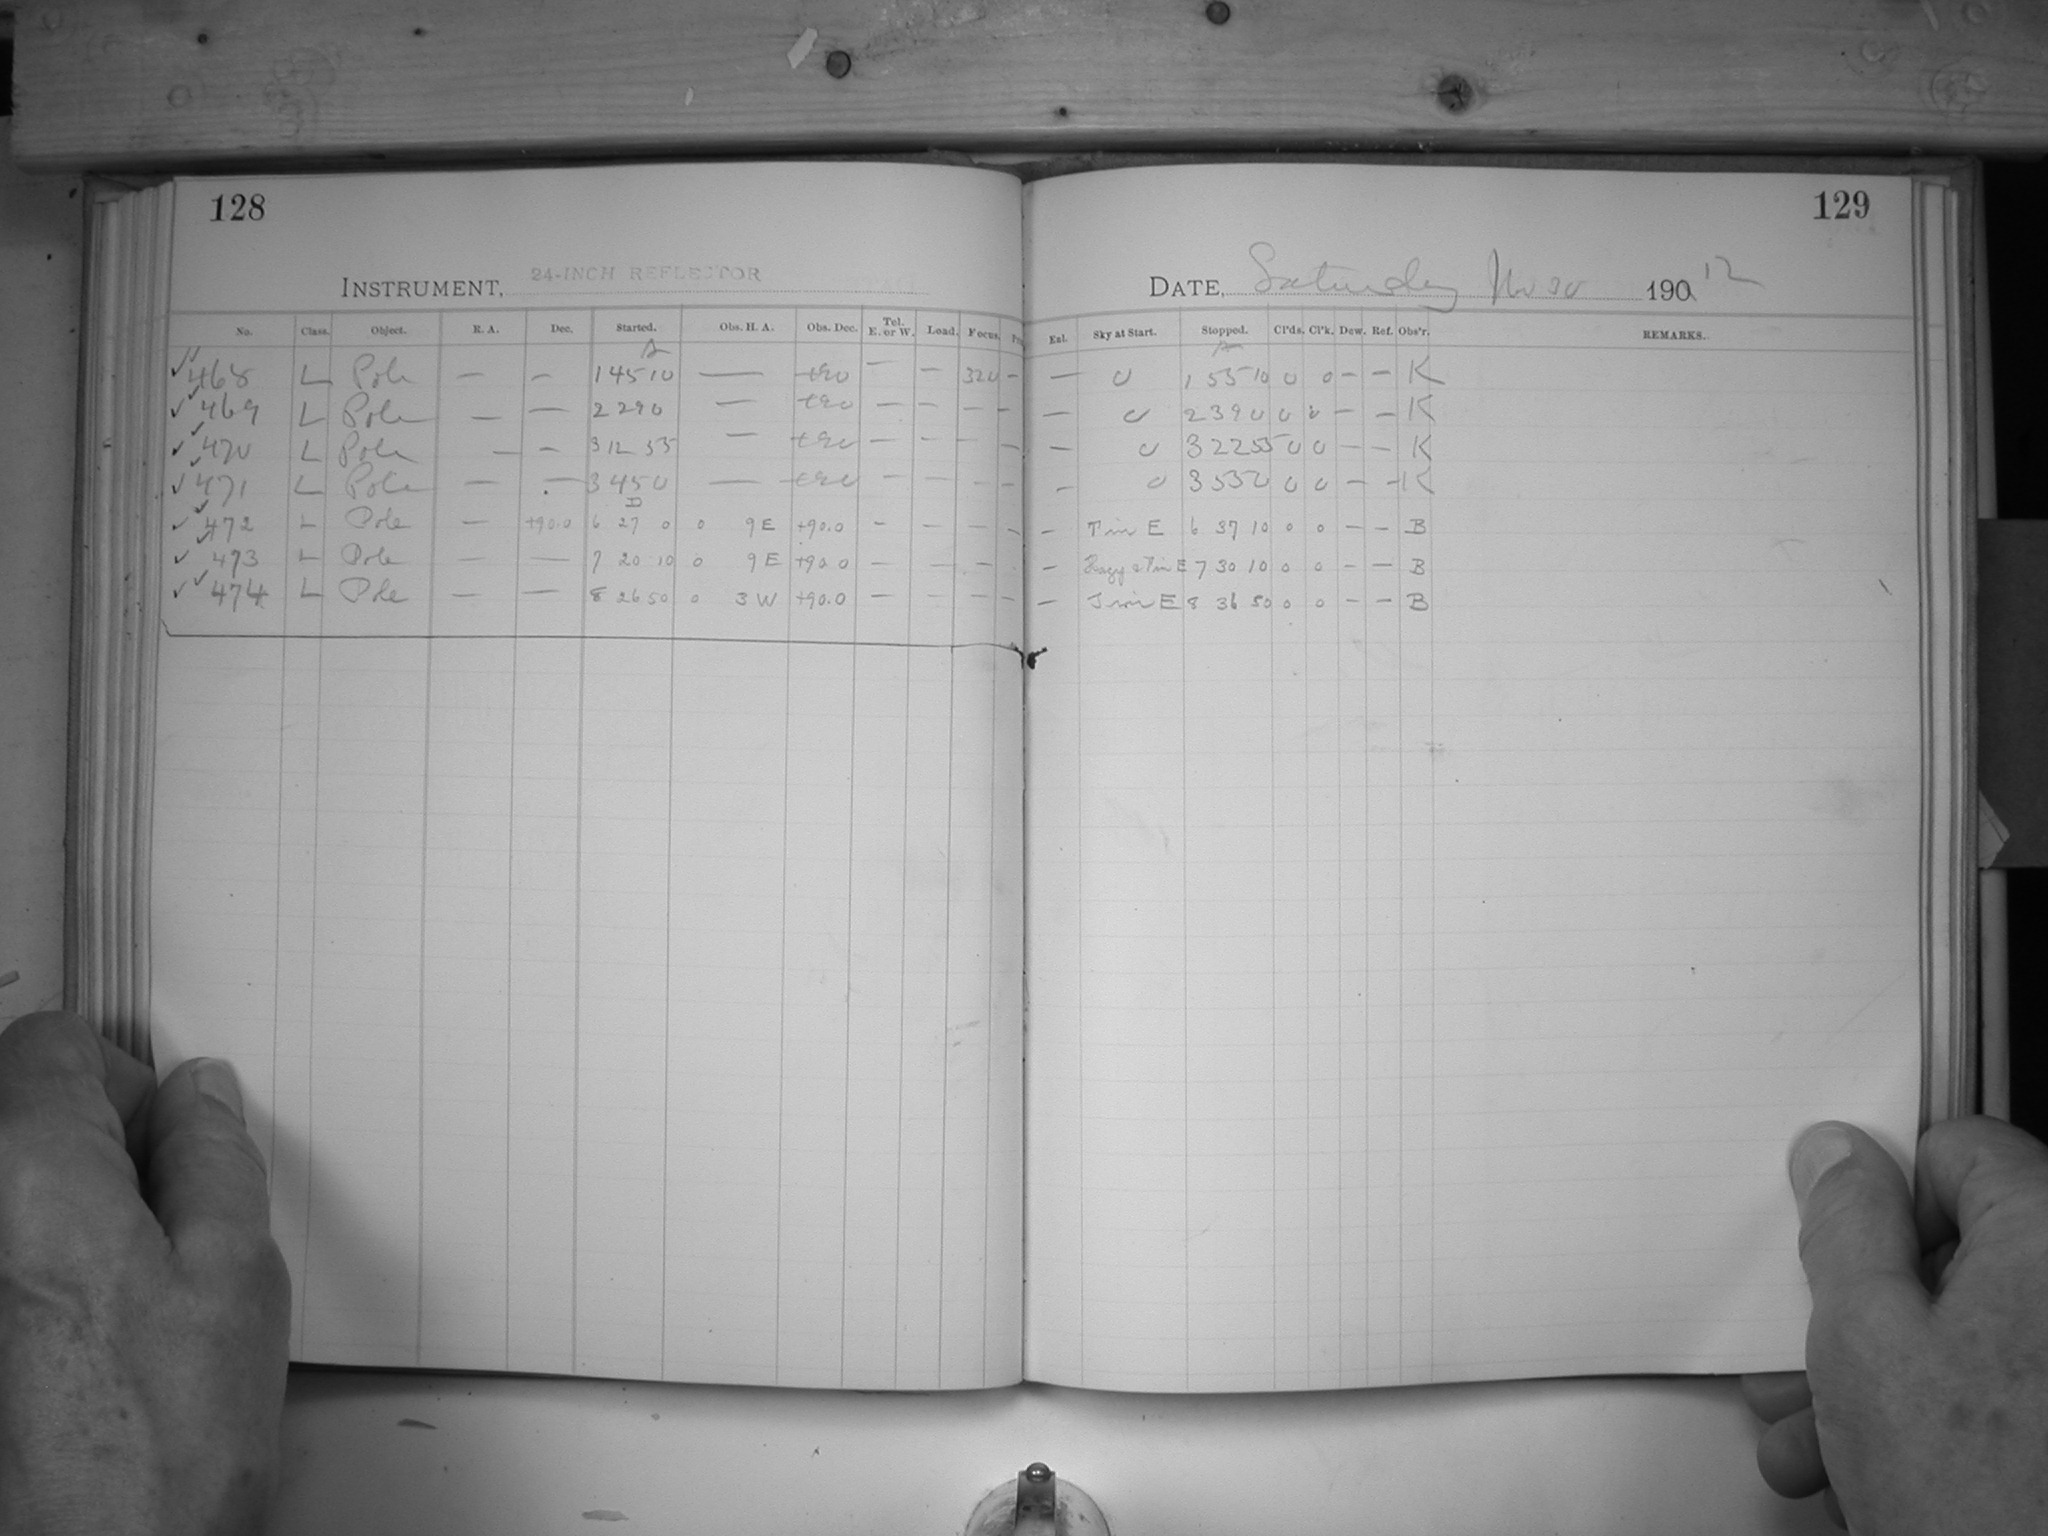 128
INSTRUMENT, 24-INCH REFLECTOR
No. Class. Object. R. A. Dec. Started. Obs. H. A. Obs. Dec. Tel. E. or W. Load. Focus.
A
468 L Pole — — 1 45 10 — +90 — — 320 —
469 L Pole — — 2 29 0 — +90 — — — —
470 L Pole — — 3 12 55 — +90 — — — —
471 L Pole — — 3 45 0 — +90 — — — —
D
472 L Pole — +90.0 6 27 0 0 9 E +90.0 — — — —
473 L Pole — — 7 20 10 0 9 E +90.0 — — — —
474 L Pole — — 8 26 50 0 3 W +90.0 — — — —
129
DATE, Saturday Nov 30 1912
Enl. Sky at Start. Stopped. Cl'ds. Cl'k. Dew. Ref. Obs'r. REMARKS.
A
— 0 1 55 10 0 0 — — K
— 0 2 39 0 0 0 — — K
— 0 3 22 55 0 0 — — K
— 0 3 55 0 0 0 — — K
— E 6 37 10 0 0 — — B
— Hazy & E 7 30 10 0 0 — — B
— E 8 36 50 0 0 — — B